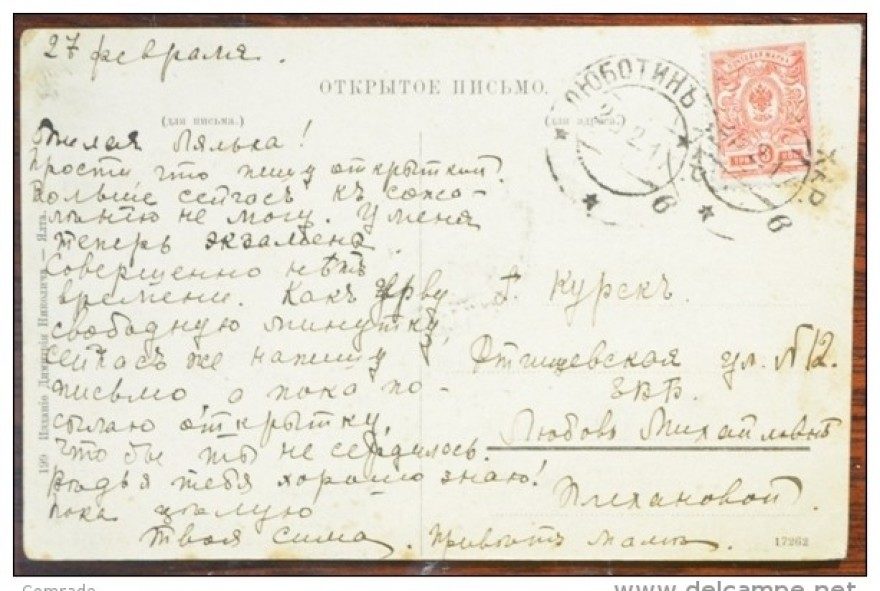 27 февраля.
ОТКРЫТОЕ ПИСЬМО.
(для письма.)
(для адреса.)
ЛЮБОТИНЪ ХАР
ХАР.
6
6
Милая Лялька!
Прости что пишу открыткой.
Больше сейчасъ къ сожа-
лѣнію не могу. У меня
теперь экзамены.
Совершенно нѣтъ
времени. Какъ урву
свободную минутку,
сейчасъ же напишу
письмо, а пока по-
сылаю открытку,
что бы ты не сердилась.
Вѣдь я тебя хорошо знаю!
Пока цѣлую
Твоя Сима. Привѣтъ мамѣ.
г. Курскъ.
ул. №12.
ЕВБ.
Любовь Михайловнѣ
Плехановой.
199 Изданіе Димитрія Николича — Ялта.
17262
Comrade
www.delcampe.net